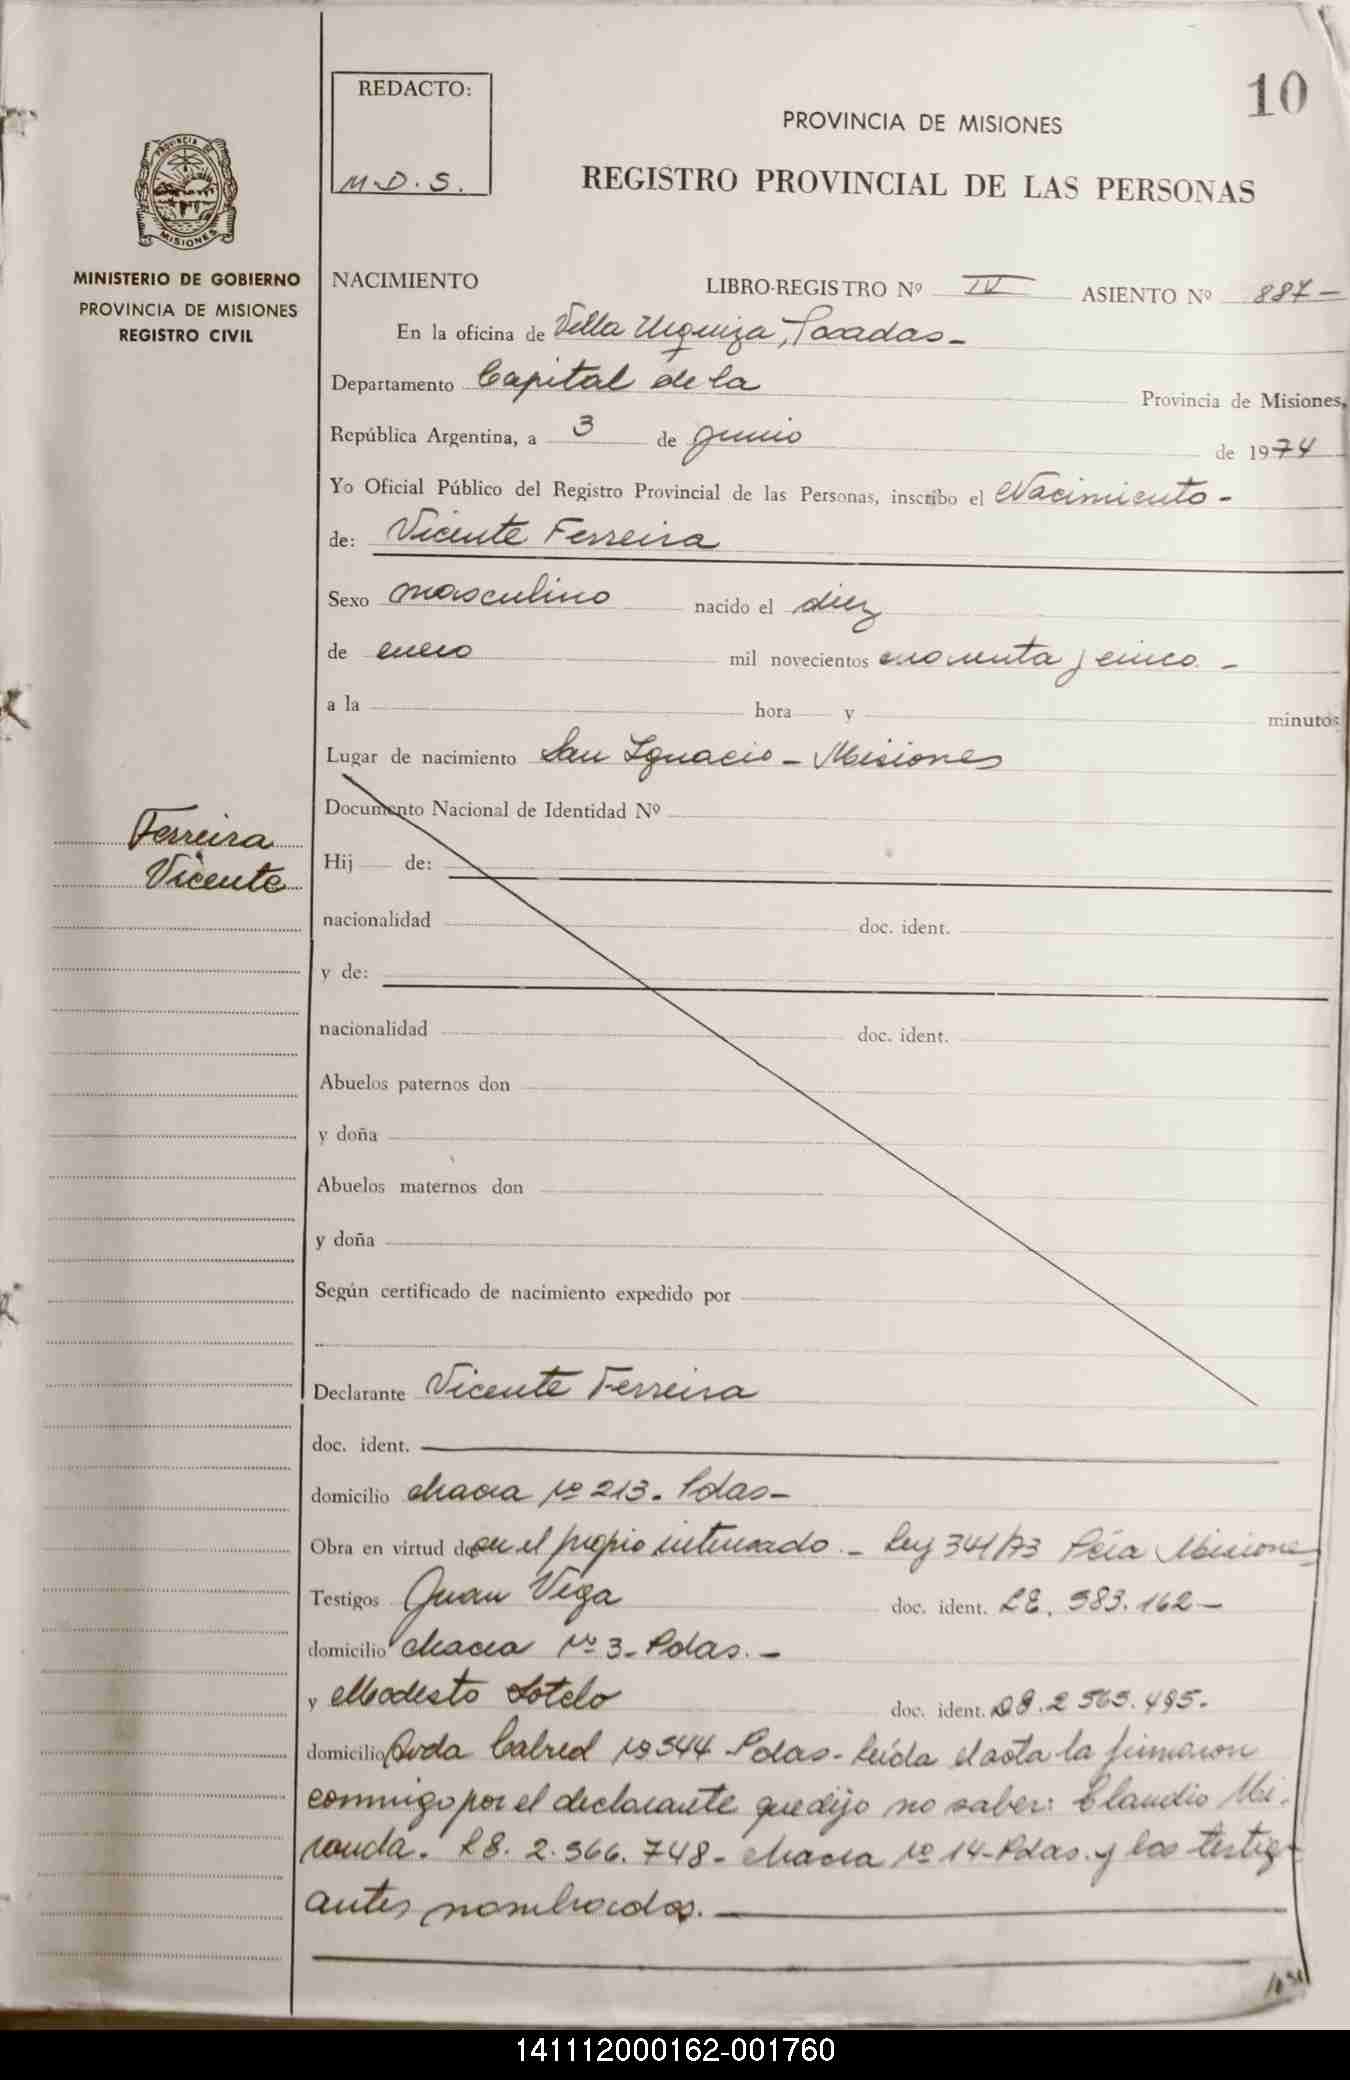 10
REDACTO:
M.D.S.
PROVINCIA DE MISIONES
REGISTRO PROVINCIAL DE LAS PERSONAS
PROVINCIA DE
MISIONES
MINISTERIO DE GOBIERNO
PROVINCIA DE MISIONES
REGISTRO CIVIL
Ferreira
Vicente
NACIMIENTO LIBRO-REGISTRO Nº IV ASIENTO Nº 887-
En la oficina de Villa Urquiza, Posadas-
Departamento Capital de la Provincia de Misiones,
República Argentina, a 3 de junio de 1974
Yo Oficial Público del Registro Provincial de las Personas, inscribo el Nacimiento-
de: Vicente Ferreira
Sexo masculino nacido el diez
de enero mil novecientos cuarenta y cinco. -
a la hora y minutos
Lugar de nacimiento San Ignacio - Misiones
Documento Nacional de Identidad Nº
Hij de:
nacionalidad doc. ident.
y de:
nacionalidad doc. ident.
Abuelos paternos don
y doña
Abuelos maternos don
y doña
Según certificado de nacimiento expedido por
Declarante Vicente Ferreira
doc. ident.
domicilio chacra nº 213. Pdas-
Obra en virtud de ser el propio interesado. - Ley 341/73 Pcia Misiones
Testigos Juan Vega doc. ident. LE. 583.162-
domicilio chacra nº 3- Pdas. -
y Modesto Sotelo doc. ident. 2.565.495.
domicilio Avda Cabred nº 544 Pdas- Leída el acta la firmaron
conmigo por el declarante que dijo no saber: Claudio Mi-
randa. LE. 2.566.748- chacra nº 14- Pdas. y los testig-
antes nombrados.
141112000162-001760